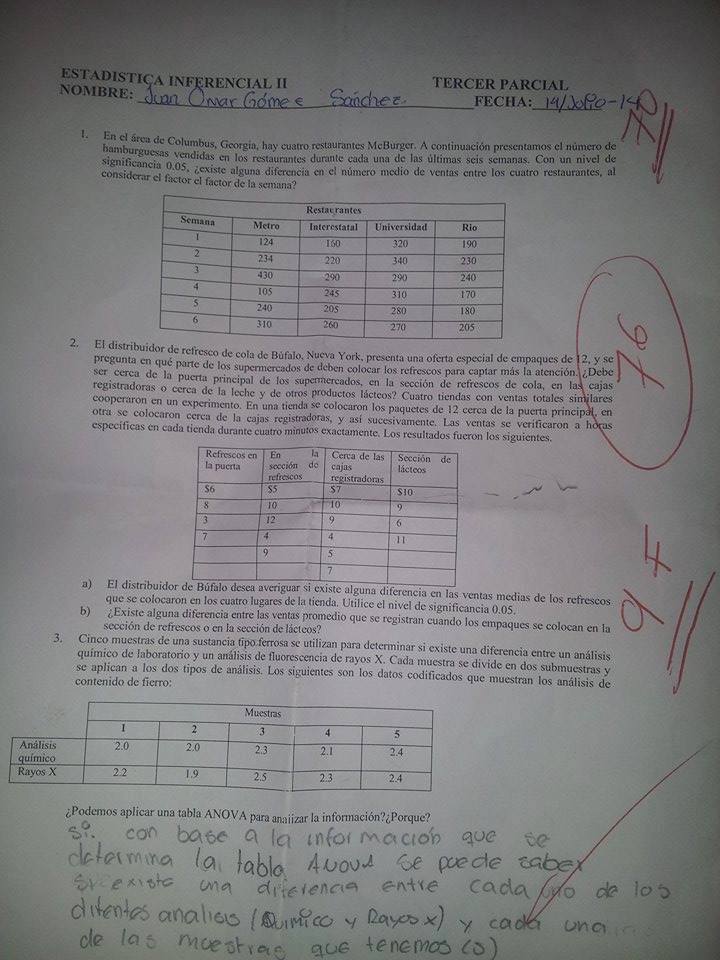 ESTADISTICA INFERENCIAL II TERCER PARCIAL
NOMBRE: Juan Omar Gómez Sánchez. FECHA: 14/Julio-14
70
1. En el área de Columbus, Georgia, hay cuatro restaurantes McBurger. A continuación presentamos el número de
hamburguesas vendidas en los restaurantes durante cada una de las últimas seis semanas. Con un nivel de
significancia 0.05, ¿existe alguna diferencia en el número medio de ventas entre los cuatro restaurantes, al
considerar el factor el factor de la semana?
Restaurantes
Semana Metro Interestatal Universidad Rio
1 124 160 320 190
2 234 220 340 230
3 430 290 290 240
4 105 245 310 170
5 240 205 280 180
6 310 260 270 205
76
2. El distribuidor de refresco de cola de Búfalo, Nueva York, presenta una oferta especial de empaques de 12, y se
pregunta en qué parte de los supermercados de deben colocar los refrescos para captar más la atención. ¿Debe
ser cerca de la puerta principal de los supermercados, en la sección de refrescos de cola, en las cajas
registradoras o cerca de la leche y de otros productos lácteos? Cuatro tiendas con ventas totales similares
cooperaron en un experimento. En una tienda se colocaron los paquetes de 12 cerca de la puerta principal, en
otra se colocaron cerca de la cajas registradoras, y así sucesivamente. Las ventas se verificaron a horas
específicas en cada tienda durante cuatro minutos exactamente. Los resultados fueron los siguientes.
Refrescos en En la Cerca de las Sección de
la puerta sección de cajas lácteos
refrescos registradoras
$6 $5 $7 $10
8 10 10 9
3 12 9 6
7 4 4 11
9 5
7
a) El distribuidor de Búfalo desea averiguar si existe alguna diferencia en las ventas medias de los refrescos
que se colocaron en los cuatro lugares de la tienda. Utilice el nivel de significancia 0.05.
b) ¿Existe alguna diferencia entre las ventas promedio que se registran cuando los empaques se colocan en la
sección de refrescos o en la sección de lácteos?
3. Cinco muestras de una sustancia tipo ferrosa se utilizan para determinar si existe una diferencia entre un análisis
químico de laboratorio y un análisis de fluorescencia de rayos X. Cada muestra se divide en dos submuestras y
se aplican a los dos tipos de análisis. Los siguientes son los datos codificados que muestran los análisis de
contenido de fierro:
Muestras
1 2 3 4 5
Análisis 2.0 2.0 2.3 2.1 2.4
químico
Rayos X 2.2 1.9 2.5 2.3 2.4
¿Podemos aplicar una tabla ANOVA para analizar la información?¿Porque?
si. con base a la información que se
determina la tabla ANOVA se puede saber
si existe una diferencia entre cada uno de los
difentes analisis (Quimico y Rayos x) y cada una
de las muestras que tenemos (s)